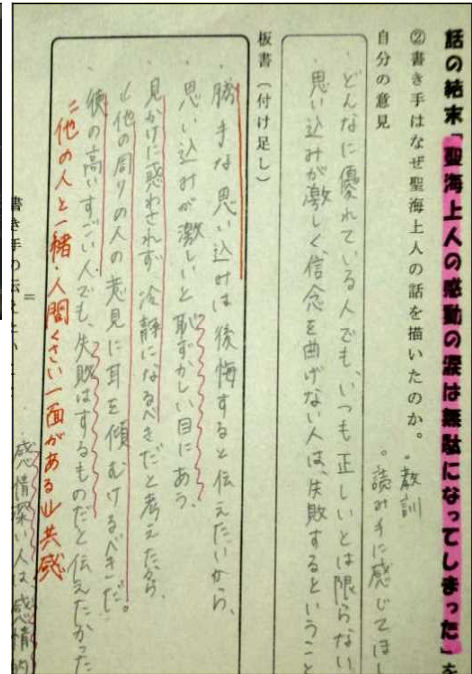 話の結末「聖海上人の感動の涙は無駄になってしまった」を
②書き手はなぜ聖海上人の話を描いたのか。
・教訓
。読み手に感じてほし
自分の意見
・どんなに優れている人でも、いつも正しいとは限らない
思い込みが激しく信念を曲げない人は、失敗するということ
板書（付け足し）
・勝手な思い込みは後悔すると伝えたいから、
思い込みが激しいと恥ずかしい目にあう。
・見かけに惑わされず冷静になるべきだと考えたから、
他の周りの人の意見に耳を傾むけるべきだ。
・徳の高いすごい人でも、失敗はするものだと伝えたかった
＝他の人と一緒・人間くさい一面がある 共感
＝
書き手の伝えたい
・感情深い人は感情的